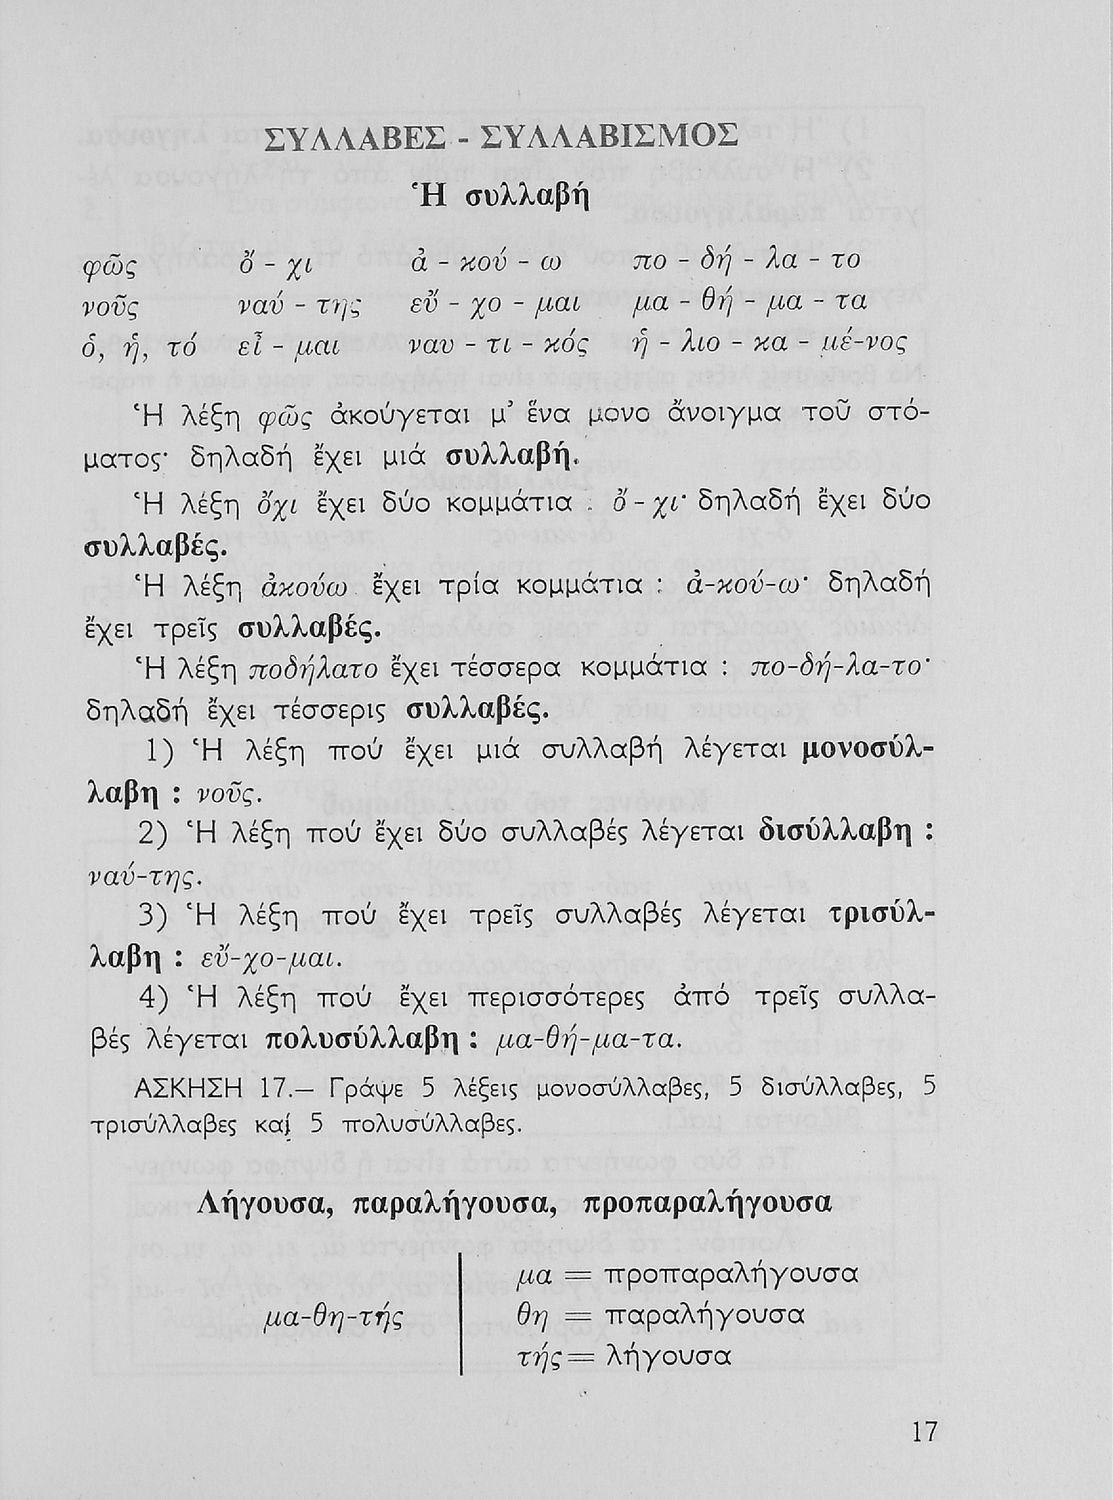 ΣΥΛΛΑΒΕΣ - ΣΥΛΛΑΒΙΣΜΟΣ
Ἡ συλλαβή
φῶς ὄ - χι ἀ - κού - ω πο - δή - λα - το
νοῦς ναύ - της εὔ - χο - μαι μα - θή - μα - τα
ὁ, ἡ, τό εἶ - μαι ναυ - τι - κός ἡ - λιο - κα - μέ-νος
Ἡ λέξη φῶς ἀκούγεται μ’ ἕνα μόνο ἄνοιγμα τοῦ στό-
ματος· δηλαδή ἔχει μιά συλλαβή.
Ἡ λέξη ὄχι ἔχει δύο κομμάτια : ὄ - χι· δηλαδή ἔχει δύο
συλλαβές.
Ἡ λέξη ἀκούω ἔχει τρία κομμάτια : ἀ-κού-ω· δηλαδή
ἔχει τρεῖς συλλαβές.
Ἡ λέξη ποδήλατο ἔχει τέσσερα κομμάτια : πο-δή-λα-το·
δηλαδή ἔχει τέσσερις συλλαβές.
1) Ἡ λέξη πού ἔχει μιά συλλαβή λέγεται μονοσύλ-
λαβη : νοῦς.
2) Ἡ λέξη πού ἔχει δύο συλλαβές λέγεται δισύλλαβη :
ναύ-της.
3) Ἡ λέξη πού ἔχει τρεῖς συλλαβές λέγεται τρισύλ-
λαβη : εὔ-χο-μαι.
4) Ἡ λέξη πού ἔχει περισσότερες ἀπό τρεῖς συλλα-
βές λέγεται πολυσύλλαβη : μα-θή-μα-τα.
ΑΣΚΗΣΗ 17.— Γράψε 5 λέξεις μονοσύλλαβες, 5 δισύλλαβες, 5
τρισύλλαβες καί 5 πολυσύλλαβες.
Λήγουσα, παραλήγουσα, προπαραλήγουσα
μα = προπαραλήγουσα
μα-θη-τής θη = παραλήγουσα
τής = λήγουσα
17